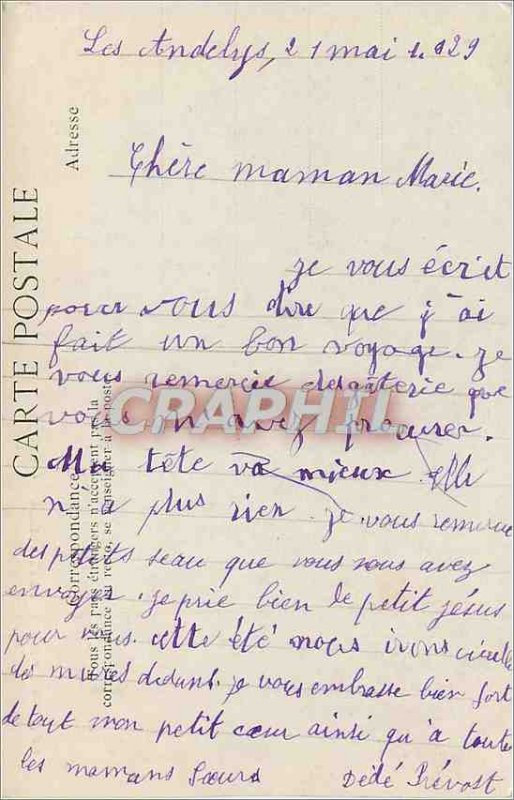 Les Andelys, 21 mai 1929
Chère maman Marie.
je vous écrit
pour vous dire que j'ai
fait un bon voyage. je
vous remercie des gâterie que
vous m'avez procurer.
Ma tête va mieux. elle
n'a plus rien. je vous remercie
des petits seau que vous nous avez
envoyer. je prie bien le petit jésus
pour vous. cette été nous irons cueillir
des mures dedans. je vous embrasse bien fort
de tout mon petit cœur ainsi qu'à toute
les mamans Sœurs Dédé Prévost
CARTE POSTALE
Adresse
Correspondance
Tous les pays étrangers n'acceptent pas la
correspondance au recto, se renseigner à la poste
CRAPHIL